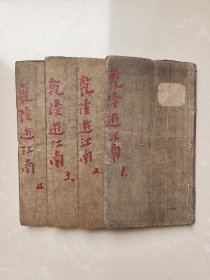 乾隆遊江南 1.
乾隆遊江南 2.
乾隆遊江南 3.
乾隆遊江南 4